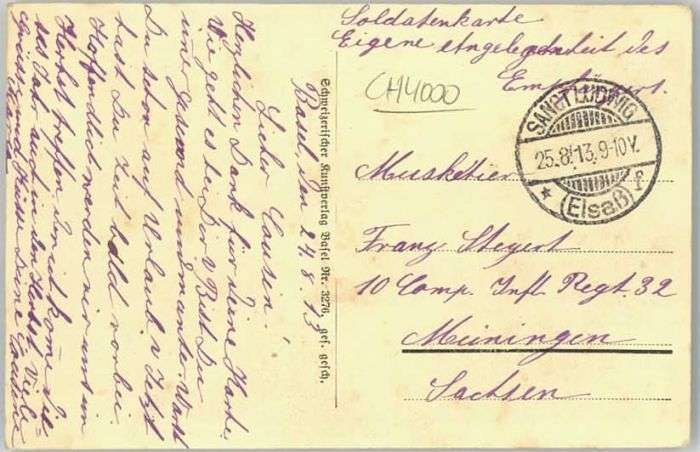 Soldatenkarte
Eigene Angelegenheit des
Empfängers.
CH4000
SANCT LUDWIG
25.8.13.9-10V.
* (Elsaß) f
Musketier
Franz Stegert
10 Comp. Inft. Regt. 32
Meiningen
Sachsen
Schweizerischer Kunstverlag Basel Nr. 3276, ges. gesch.
Basel, den 24.8.13
Lieber Cousin!
Herzlichen Dank für Deine Karte.
Wie geht es Dir? Bist Du
immer gesund und munter. Warst
Du schon auf Urlaub? Jetzt
hast Du Zeit bald vorbei.
Hoffentlich werden wir uns im
Herbst treffen.
ses Jahr auch in den Herbst. Viele
Grüsse und Küsse Deine Cousine